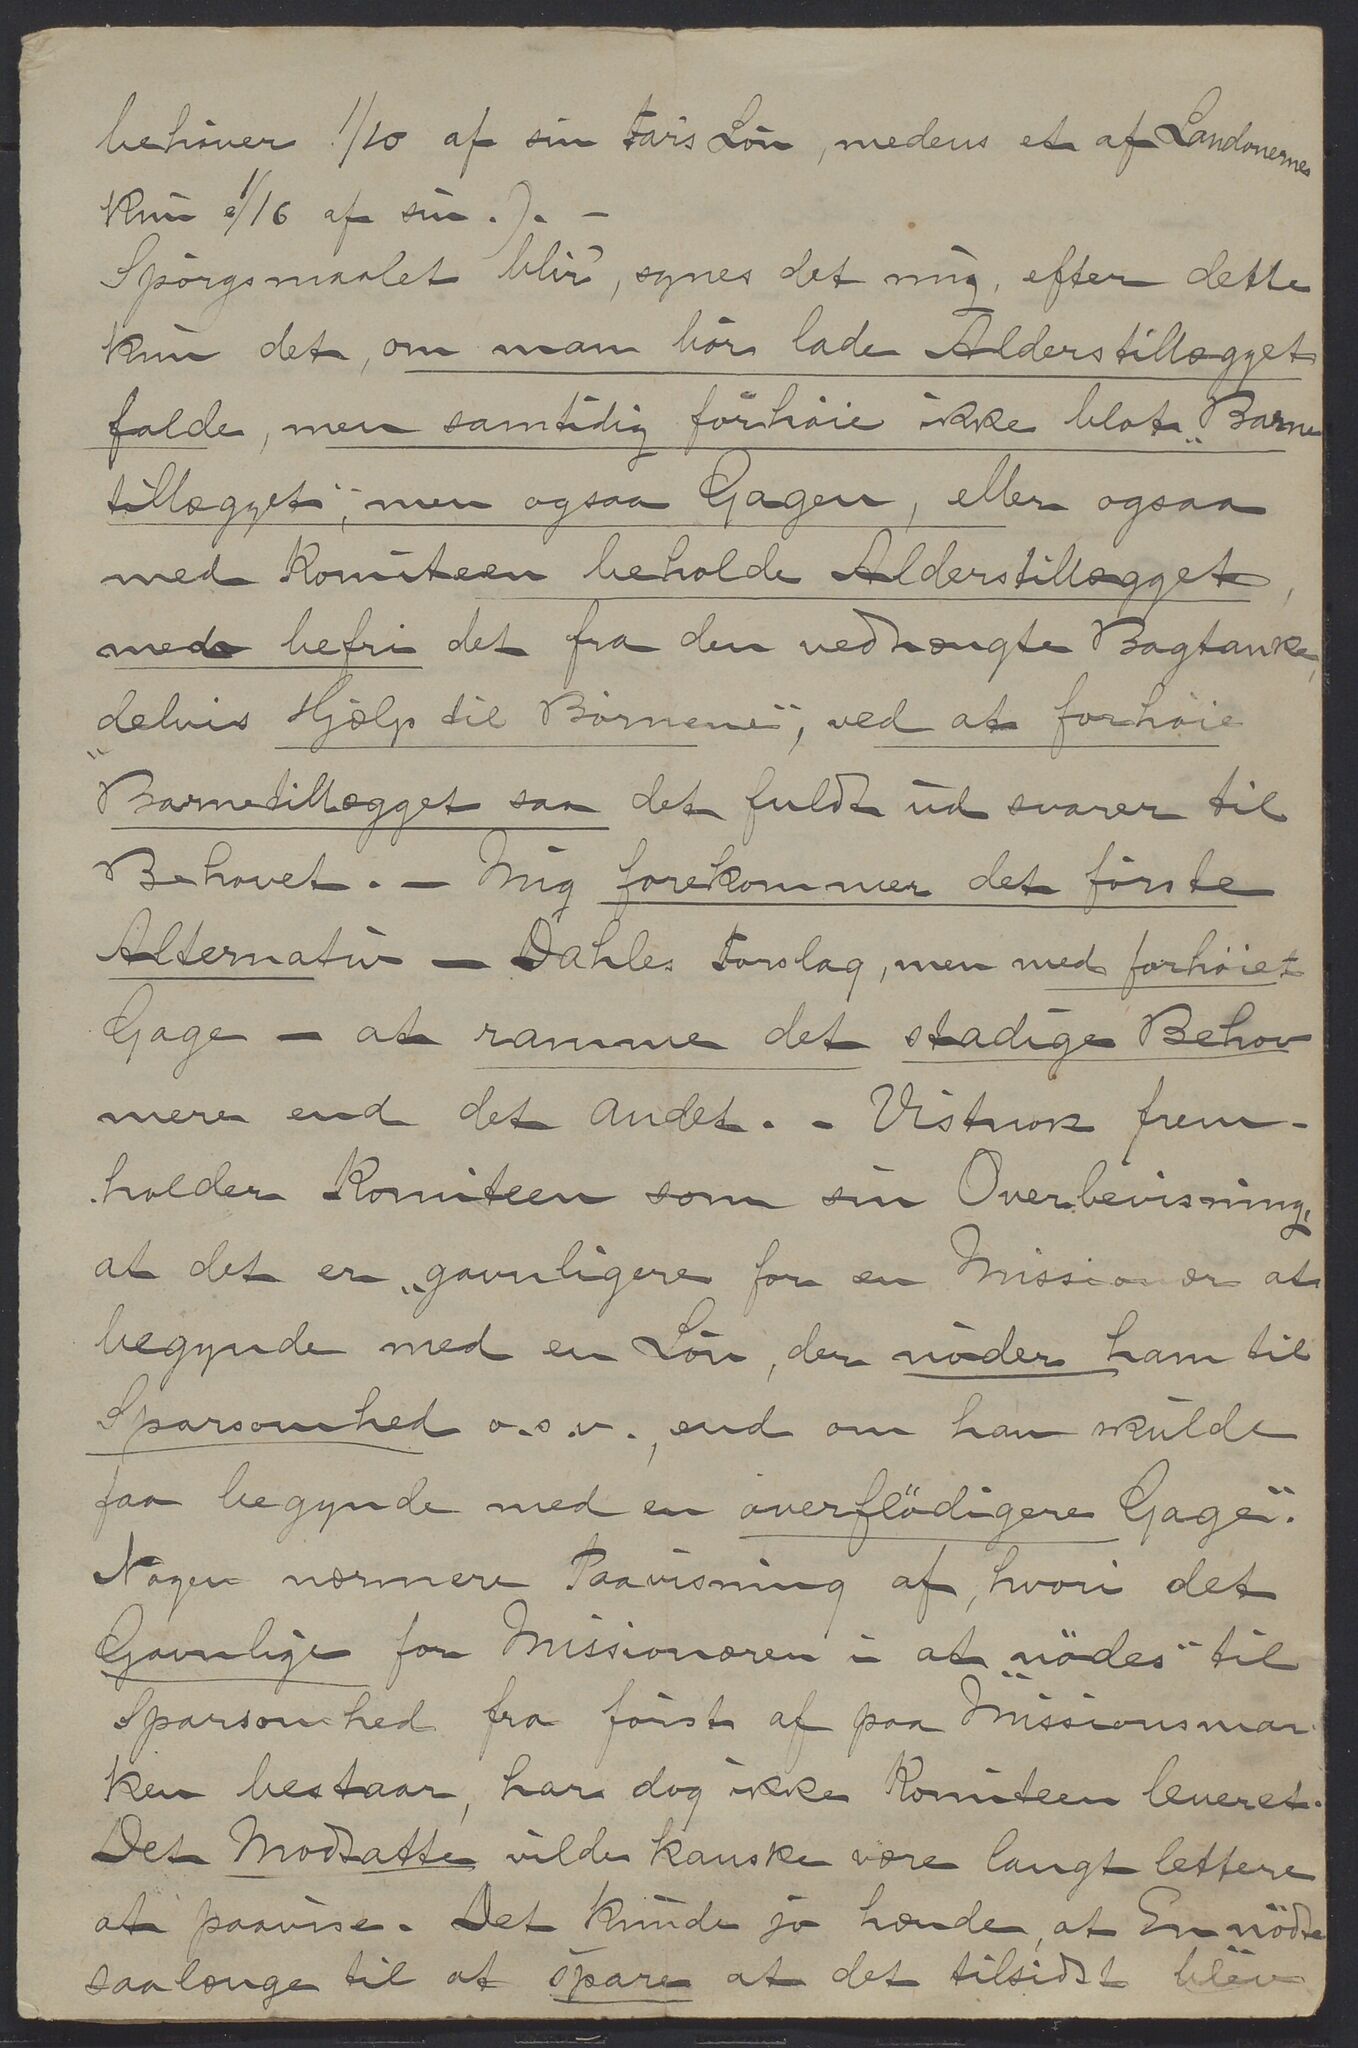 behøver 1/10 af sin Fars Løn, medens et af Landonernes
kun 1/16 af sin.). –
Spørgsmaalet blir, synes det mig, efter dette
kun det, om man bør lade Alderstillægget
falde, men samtidig forhøie ikke blot „Barne
tillægget“, men ogsaa Gagen, eller ogsaa
med Komiteen beholde Alderstillægget,
med befri det fra den vedhængte Bagtanke,
delvis Hjælp til Børnene“, ved at forhøie
„Barnetillægget saa det fuldt ud svarer til
Behovet. – Mig forekommer det første
Alternativ – Dahles Forslag, men med forhøiet
Gage – at ramme det stadige Behov
mere end det andet. – Vistnok frem-
holder Komiteen som sin Overbevisning,
at det er „gavnligere for en Missionær at
begynde med en Løn, der nøder ham til
Sparsomhed o.s.v., end om han skulde
faa begynde med en overflødigere Gage“.
Nogen nærmere Paavisning af, hvori det
Gavnlige for Missionæren i at „nødes“ til
Sparsomhed fra først af paa Missionsmar
ken bestaar, har dog ikke Komiteen leveret.
Det Modsatte vilde kanske være langt lettere
at paavise. Det kunde jo hænde, at En nødte
saalænge til at spare at det tilsidst blev